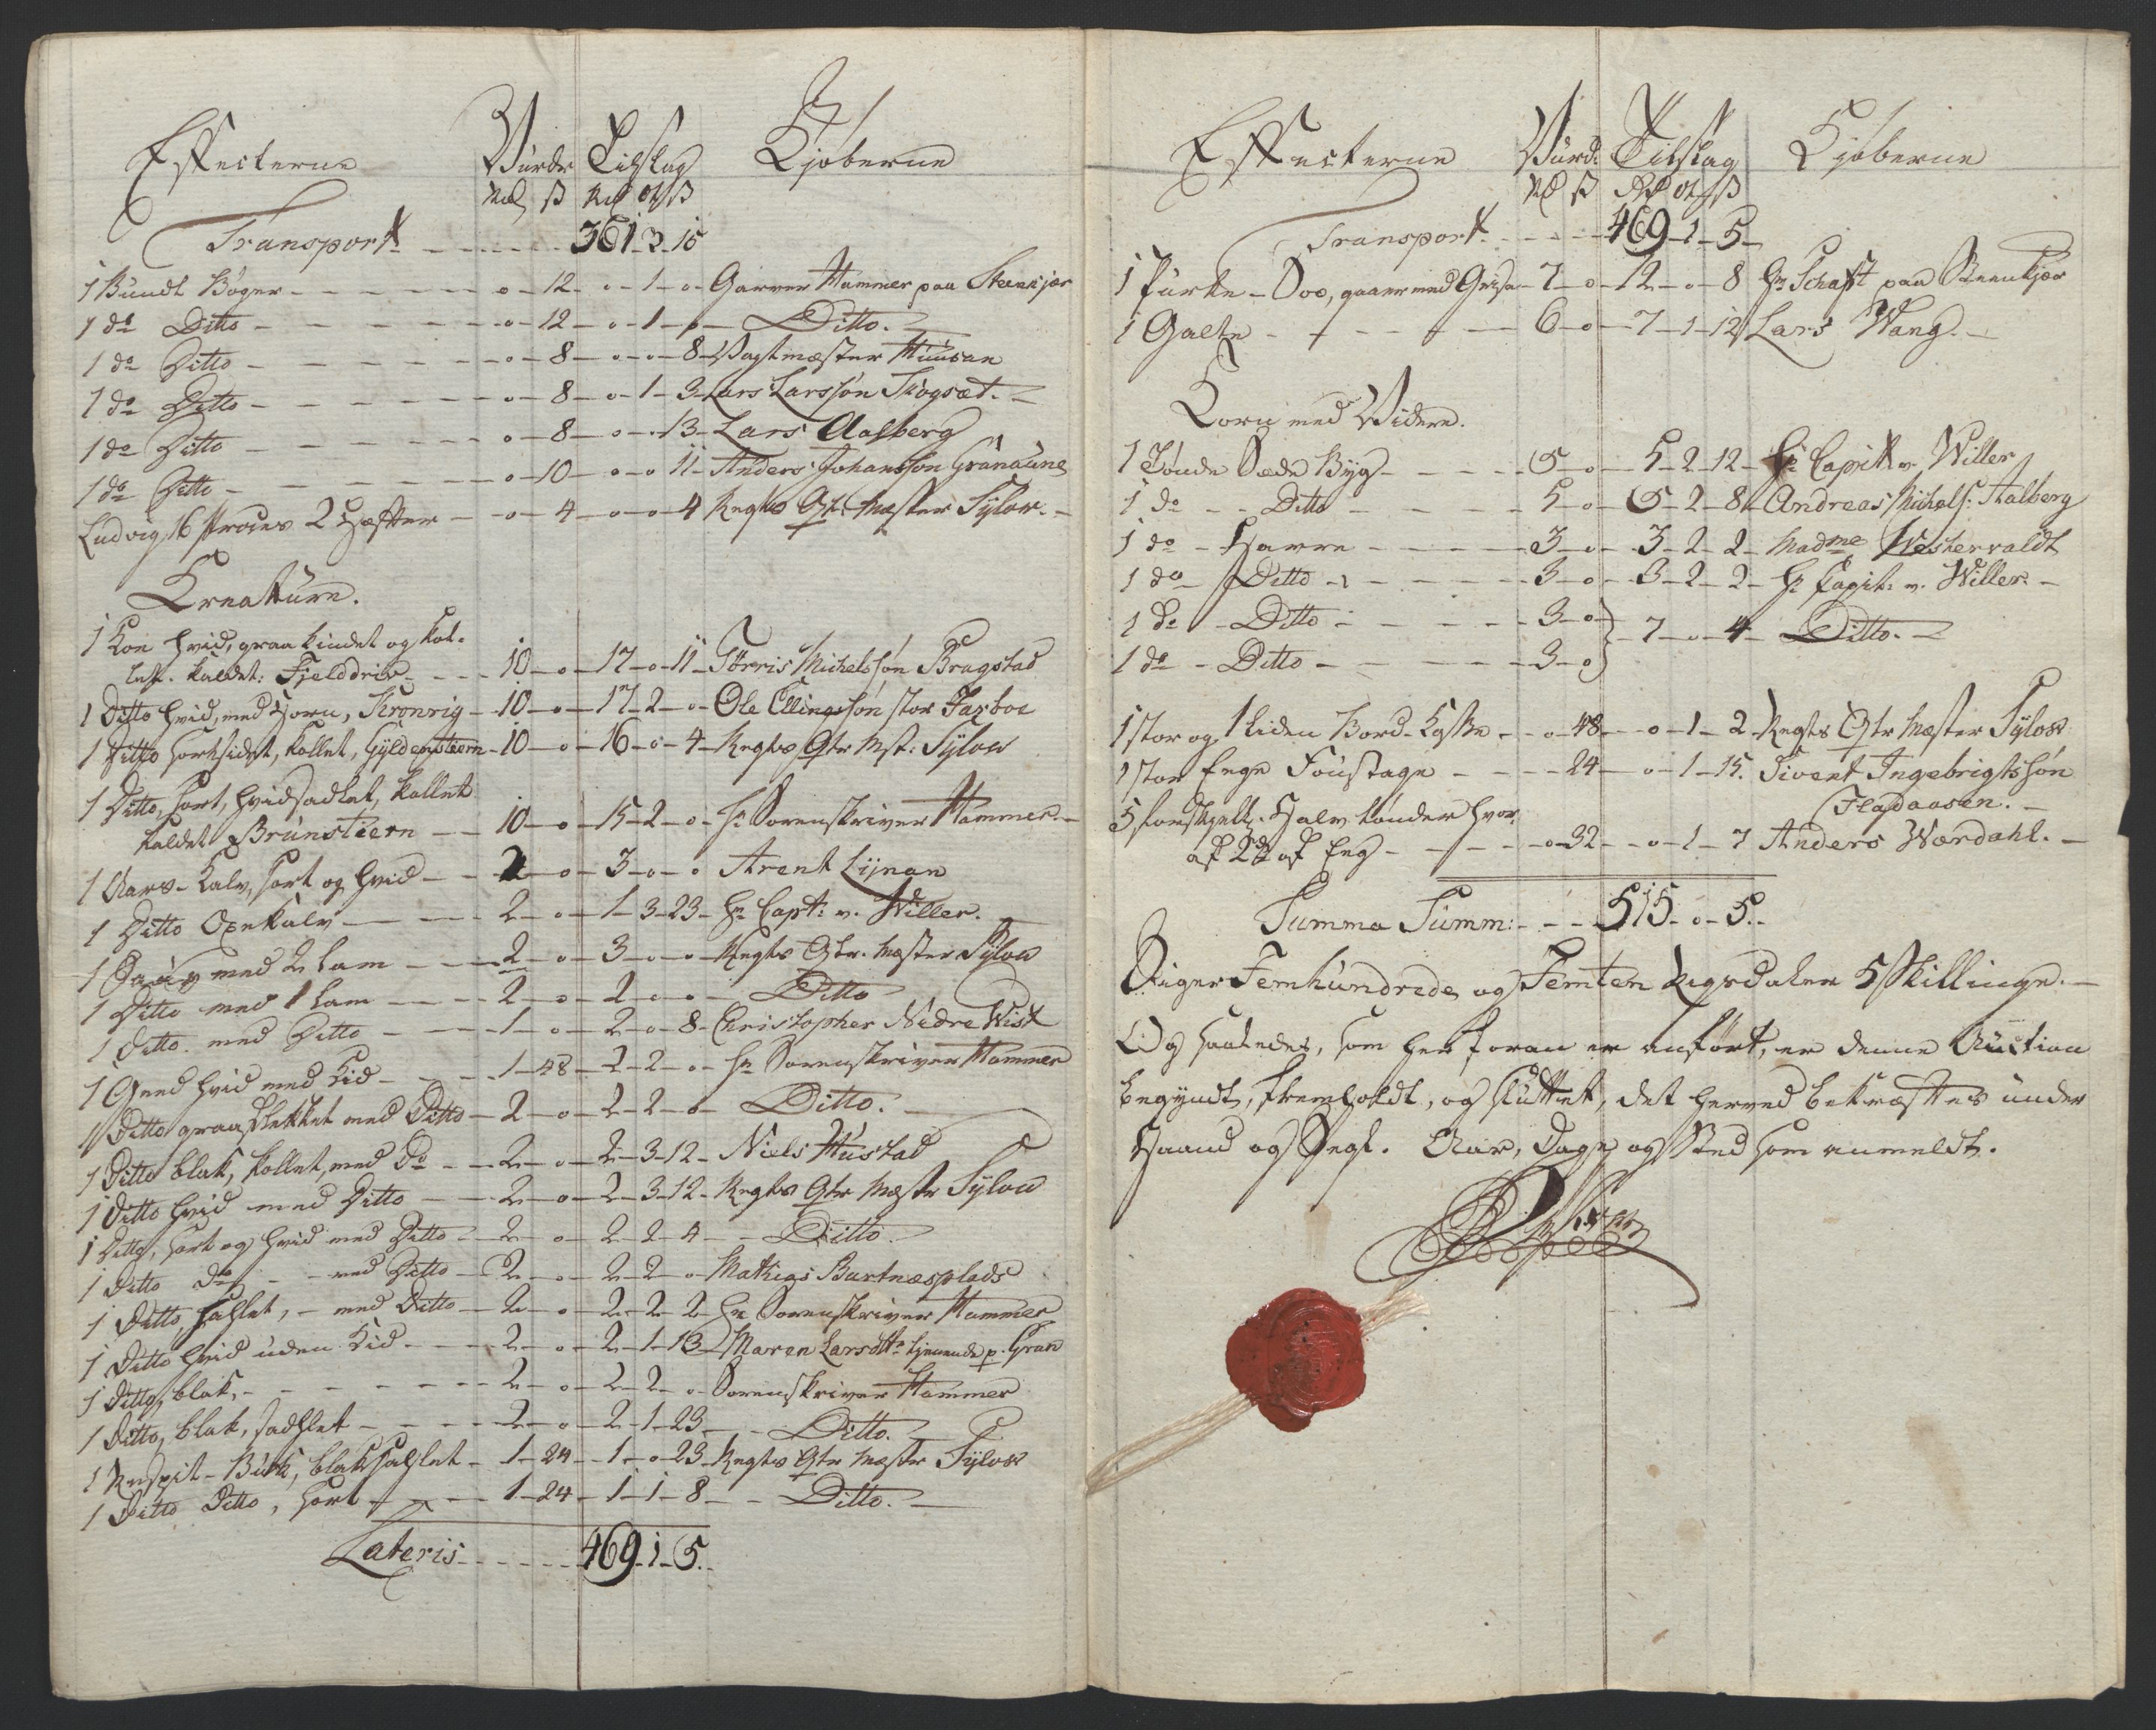 Effecterne Vurdr Tilslag Kjøberne
Rd ß Rd ort ß
Transport - - - - - - 361-3-15
1 Bundt Bøger - - - - - o-12-o-1-o- Garver Hammer paa Steenkjær
1 do Ditto - - - - - o-12-o-1-o- Ditto.
1 do Ditto - - - - - o-8-o-o-8- Vagtmæster Huusan
1 do Ditto - - - - - o-8-o-1-3- Lars Larssøn Skogsæt.
1 do Ditto - - - - - o-8-o-.-13- Lars Aalberg
1 do Ditto - - - - - o-10-o-o-11- Anders Johanssøn Granaune
Ludvig 16 Proces 2 Hæfter - o-4-o-o-4 Regts Qtr: Mæster Sylow.
Kreature.
1 Koe hvid, graa kindet og kol-
let. kaldet: Fjelddriv - - - 10-o-17-o-11- Tørris Michelssøn Bragstad
1 Ditto hvid, med Horn, Kronrig - 10-o-17-2-o- Ole Ellingssøn stor Jaxboe
1 Ditto sortsidet, kollet, Gyldensteern - 10-o-16-o-4- Regts Qtr Mst: Sylow
1 Ditto, sort, hvidsadlet, kollet
kaldet Brunsteern - - 10-o-15-2-o- Hr Sorenskriver Hammer.
1 Aars-Kalv, sort og hvid - - 2-o-3-o-o Arent Lynan
1 Ditto Oxekalv - - - 2-o-1-3-23- Hr Capt: v. Willer.
1 Saug med 2 Lam - - - 2-o-3-o-o- Regts Qtr. Mæster Sylow
1 Ditto med 1 Lam - - - 2-o-2-o-o- Ditto
1 Ditto med Ditto - - - 1-o-2-o-8- Christopher Nedre Wist
1 Geed hvid med Kid - - - 1-48-2-2-o- Hr Sorenskriver Hammer
1 Ditto graaflekket med Ditto - 2-o-2-2-o- Ditto.
1 Ditto blak, kollet, med Do - - 2-o-2-3-12- Niels Hustad
1 Ditto hvid med Ditto - - 2-o-2-3-12- Regts Qtr Mæstr Sylow
1 Ditto, sort og hvid med Ditto - 2-o-2-2-4- Ditto.
1 Ditto do - - med Ditto - 2-o-2-2-o- Mathias Bartnæsplads
1 Ditto, sahlet, - med Ditto - 2-o-2-2-2- Hr Sorenskriver Hammer
1 Ditto hvid uden Kid - - - 2-o-2-1-13- Maren Larsdttr tjenende p. Gran
1 Ditto, blak, - - - - - 2-o-2-2-o- Sorenskriver Hammer
1 Ditto, blak, sadhlet - - - 2-o-2-1-23- Ditto.
1 Buk, blaksahlet - 1-24-1-o-23- Regts Qtr Mæstr Sylow
1 Ditto Ditto, sort - - - 1-24-1-1-8- - Ditto.
Lateris - - - - - 469-1-5.
Effecterne Vurd: Tilslag Kjøberne
Rd ß Rd ort ß
Transport. - - - 469-1-5-
1 Purke-Soe, gaaer med Grise - 7-o-12-o-8 Hr Schaft paa Steenkjær
1 Galte - - - - - 6-o-7-1-12 Lars Wang.
Korn med Videre.
1 Tønde Sæde Byg - - - - 5-o-5-2-12- Hr Capit: v. Willer
1 do - - Ditto - - - - 5-o-5-2-8- Andreas Michels: Aalberg
1 do - Havre - - - - 3-o-3-2-2- Madme Weshervaldt
1 do - Ditto - - - - 3-o-3-2-2- Hr Capit: v. Willer.
1 do - Ditto - - - - 3-o } 7-o-4- Ditto.
1 do - Ditto - - - - 3-o }
1 stor og 1 liden Bord-Kaße - - o-48-o-1-2- Regts Qtr Mæster Sylow
1 stor Eege Foustage - - - - 24-o-1-15. Sivert Ingebrigtssøn
Fladaasen.
5 forskjell: Halv tønder hvor
af 2de af Eeg - - - - o-32-o-1-7 Anders Wærdahl.
Summa Summ: - - 515-o-5.
Siger Femhundrede og Femten Rigsdaler 5 Skillinge.
Og saaledes, som her foran er anført, er denne Auction
begyndt, fremholdt, og sluttet, det herved bekræftes under
Haand og Segl. Aar, Dage og Sted som anmeldt.